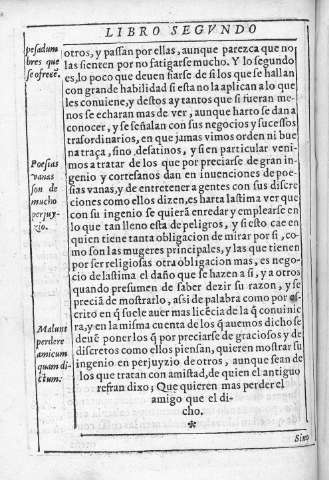 LIBRO SEGVNDO
pesadum
bres que
se ofrecē.
otros, y passan por ellas, aunque parezca que no
las sienten por no fatigarse mucho. Y lo segundo
es, lo poco que deuen fiarse de si los que se hallan
con grande habilidad si esta no la aplican a lo que
les conuiene, y destos ay tantos que si fueran me-
nos se echaran mas de ver, aunque harto se dan a
conocer, y se señalan con sus negocios y sucessos
trasordinarios, en que jamas vimos orden ni bue
na traça, sino desatinos, y si en particular veni-
Poesias
vanas
son de
mucho
perjuy-
zio.
mos a tratar de los que por preciarse de gran in-
genio y cortesanos dan en inuenciones de poe-
sias vanas, y de entretener a gentes con sus discre
ciones como ellos dizen, es harta lastima ver que
con su ingenio se quierā enredar y emplearse en
lo que tan lleno esta de peligros, y si esto cae en
quien tiene tanta obligacion de mirar por si, co-
mo son las mugeres principales, y las que tienen
por ser religiosas otra obligacion mas, es nego-
cio de lastima el daño que se hazen a si, y a otros
quando presumen de saber dezir su razon, y se
preciā de mostrarlo, assi de palabra como por es
crito en q̄ suele auer mas licēcia de la q̄ conuini
Malunt
perdere
amicum
quam di
ctum.
ra, y en la misma cuenta de los q̄ auemos dicho se
deuē poner los q̄ por preciarse de graciosos y de
discretos como ellos piensan, quieren mostrar su
ingenio en perjuyzio de otros, aunque sean de
los que tratan con amistad, de quien el antiguo
refran dixo; Que quieren mas perder el
amigo que el di-
cho.
*
Sino